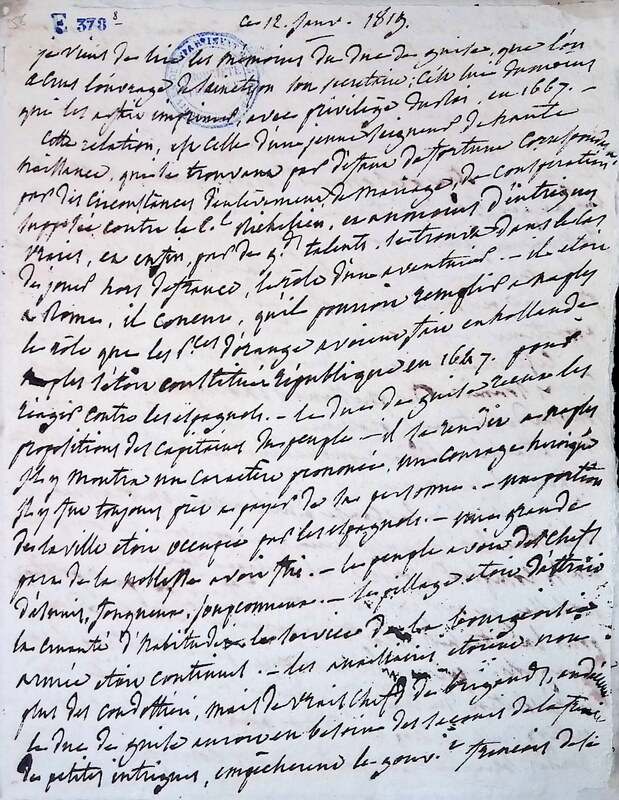 E 378 8
ce 12. Janv. 1819.
je viens de lire les mémoires du duc de guise, que l'on
a crus l'ouvrage de sainction son secretaire; Celle lui dumoins
qui les a fait imprimer, avec privilège du Roi, en 1667. —
Cette relation, est celle d'une jeune seigneur de haute
naissance, qui se trouvant par defaut de fortune
par des circonstances d'entevement de Mariage, de Conspiration
supposée contre le C.l Richelieu, et au moins d'intrigues
vraies, et enfin par de g.ds talents, se trouva dans le cas
de jouer hors de france, le rôle d'un aventurier. — il étoit
a Rome, il conçut, qu'il pouvoit remplir a naples
le rôle que les P.ces d'orange avoient fait en hollande
naples s'étoit constituée République en 1647. pour
réagir contre les espagnols. — le duc de guise reçut les
propositions des capitaines du peuple — il se rendit a naples
il y montra un caractère prononcé, un courage heroique
il y fut toujours prêt a payer de sa personne. — une portion
de la ville étoit occupée par les espagnols. — une grande
part de la noblesse avoit fui. — le peuple avoit des chefs
désunis, fougueux, soupçonneux. — le pillage étoit d'attrait
la cruauté d'habitude le service de la bourgeoisie
armée étoit continuel. — les auxiliaires étoient non
plus des condottieri, mais de vrais chefs de brigands,
le duc de guise auroit eu besoin des secours de la france
de petites intrigues, empêcherent le gouv.t français de le